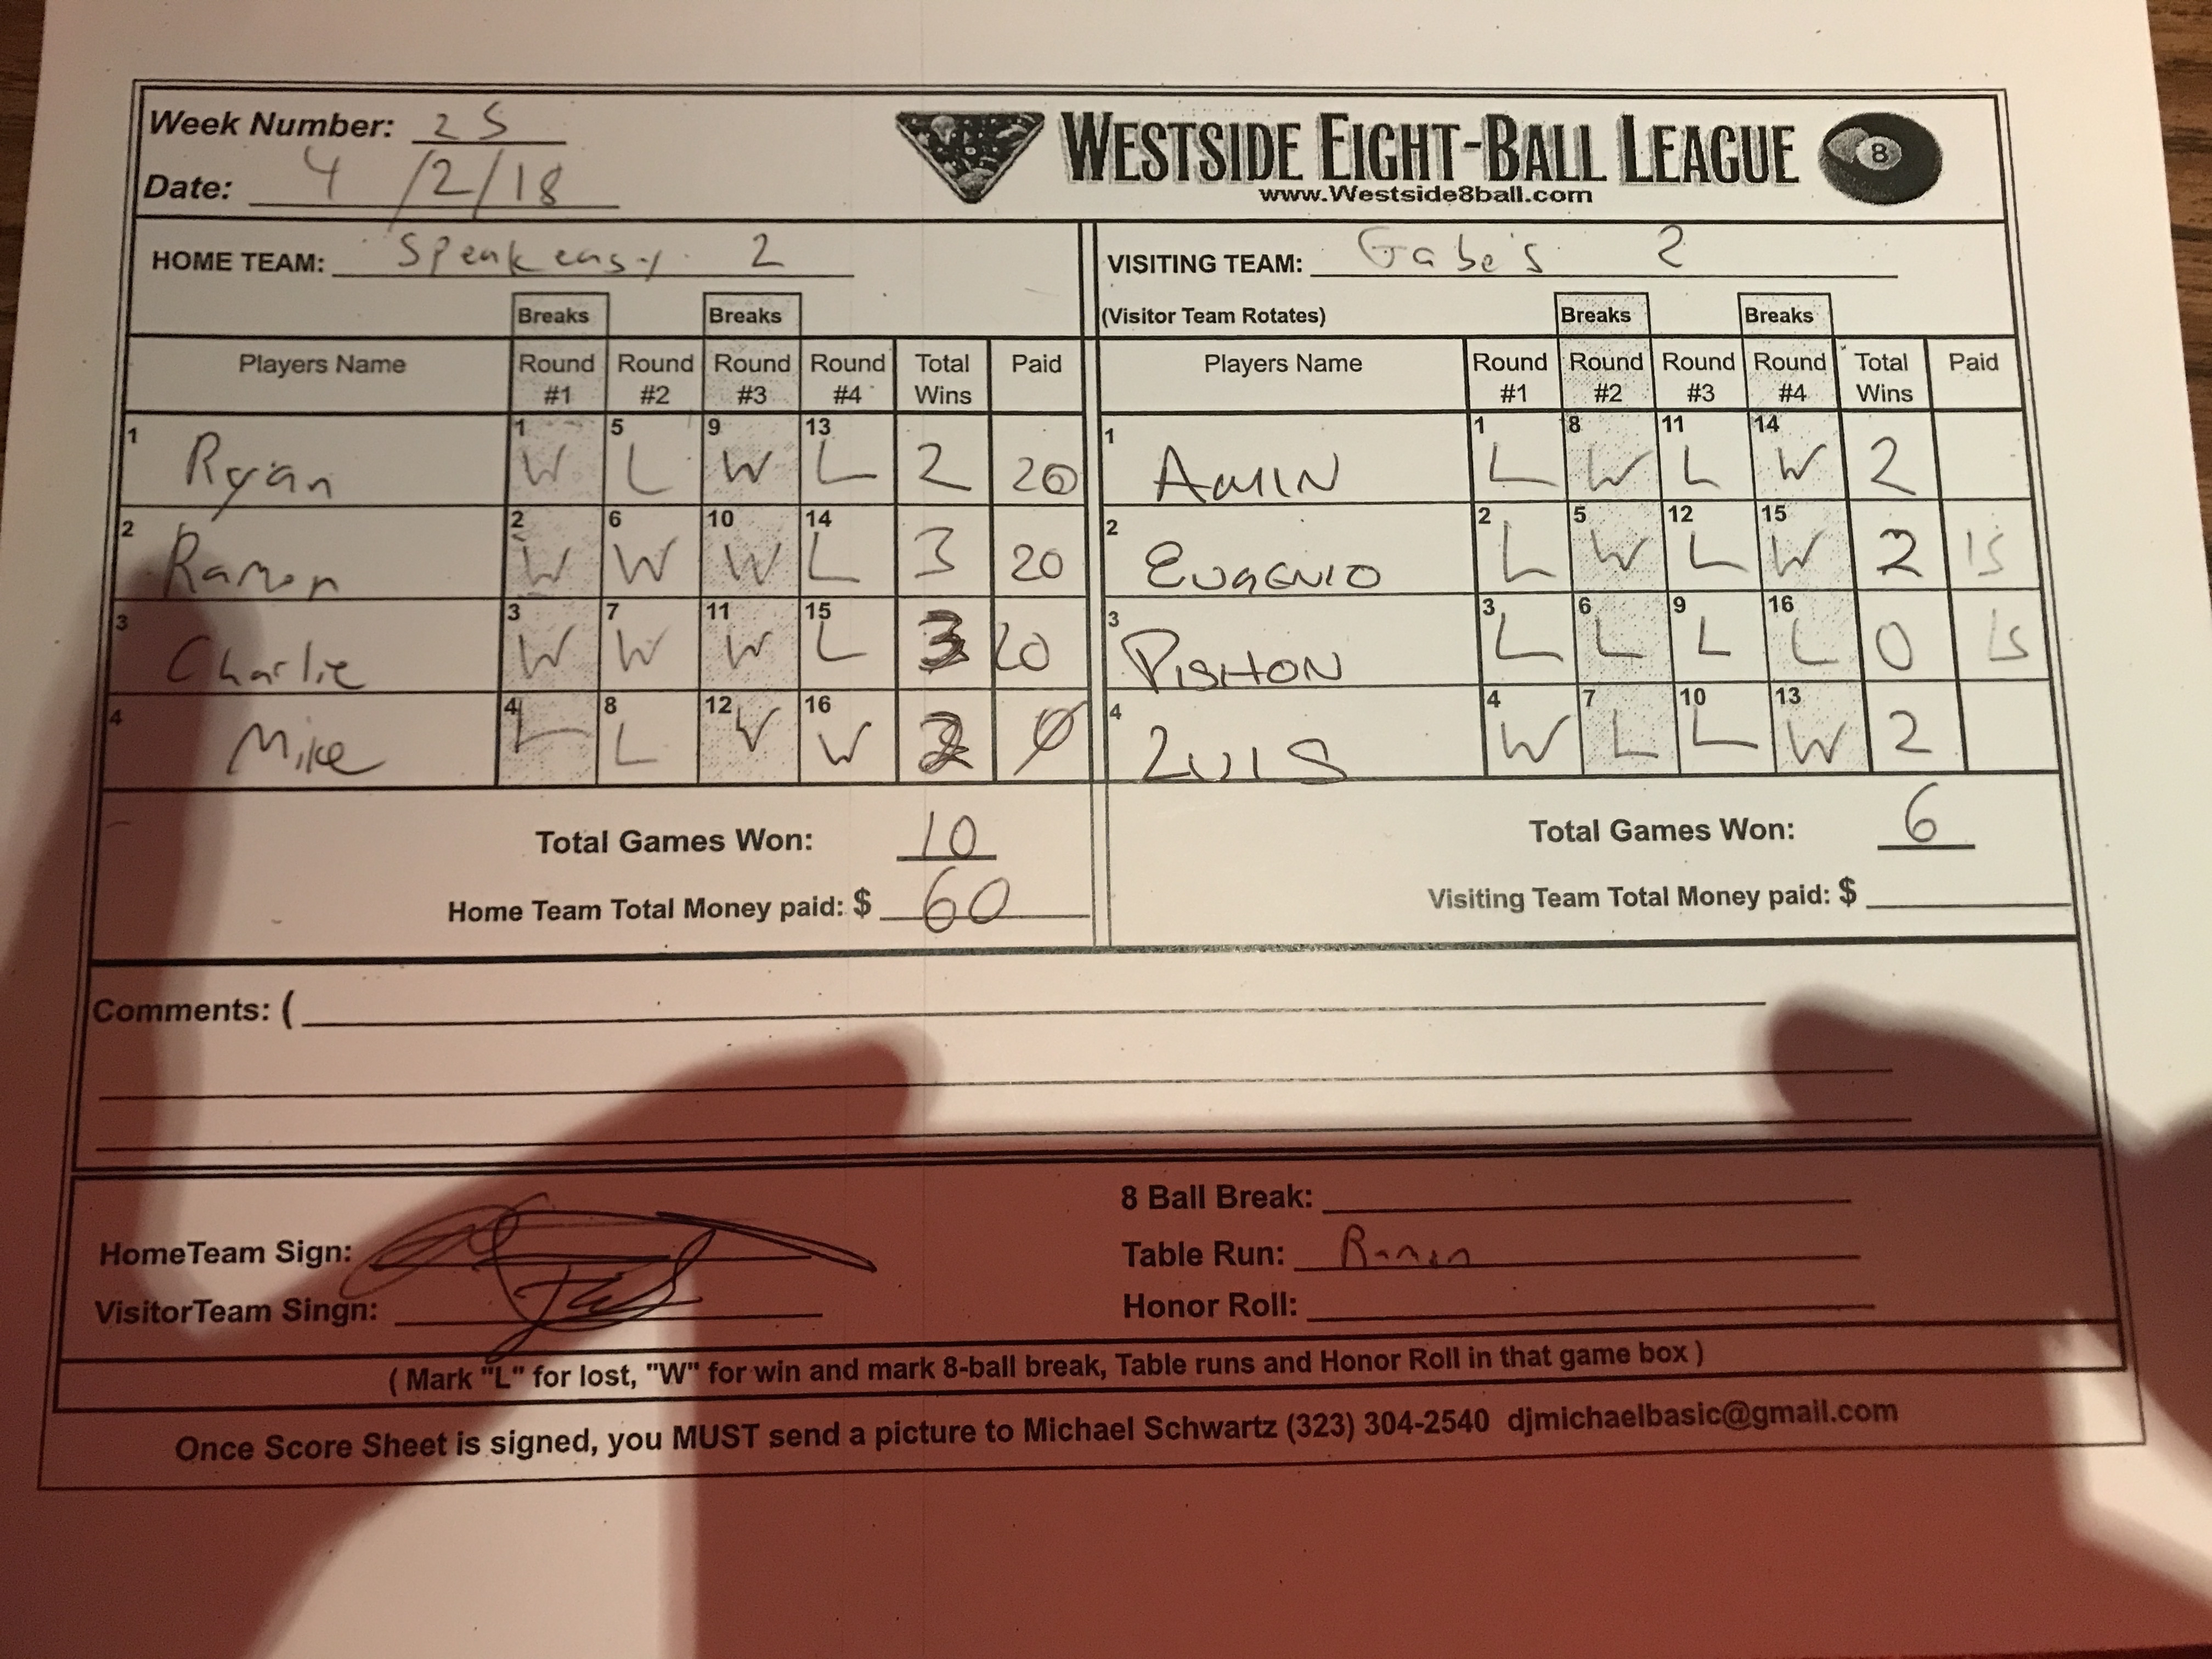 Week Number: 25
Date: 4/2/18
WESTSIDE EIGHT-BALL LEAGUE 8
www.Westside8ball.com
HOME TEAM: Speakeasy 2 VISITING TEAM: Gabe's 2
Breaks Breaks (Visitor Team Rotates) Breaks Breaks
Players Name Round #1 Round #2 Round #3 Round #4 Total Wins Paid Players Name Round #1 Round #2 Round #3 Round #4 Total Wins Paid
1 Ryan 1 W 5 L 9 W 13 L 2 20 1 AMIN 1 L 8 W 11 L 14 W 2
2 Ramon 2 W 6 W 10 W 14 L 3 20 2 EUGENIO 2 L 5 W 12 L 15 W 2 15
3 Charlie 3 W 7 W 11 W 15 L 3 20 3 PISHON 3 L 6 L 9 L 16 L 0 15
4 Mike 4 L 8 L 12 W 16 W 2 0 4 LUIS 4 W 7 L 10 L 13 W 2
Total Games Won: 10 Total Games Won: 6
Home Team Total Money paid: $ 60 Visiting Team Total Money paid: $
Comments: (
8 Ball Break:
HomeTeam Sign: Table Run: Ramon
VisitorTeam Singn: Honor Roll:
( Mark "L" for lost, "W" for win and mark 8-ball break, Table runs and Honor Roll in that game box )
Once Score Sheet is signed, you MUST send a picture to Michael Schwartz (323) 304-2540 djmichaelbasic@gmail.com